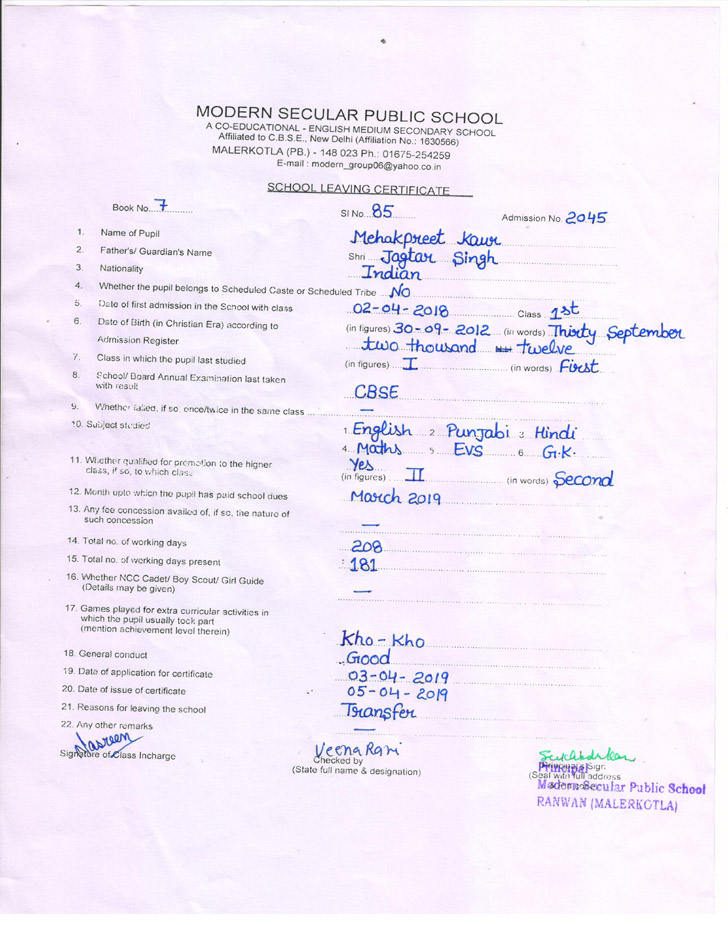 MODERN SECULAR PUBLIC SCHOOL
A CO-EDUCATIONAL - ENGLISH MEDIUM SECONDARY SCHOOL
Affiliated to C.B.S.E., New Delhi (Affiliation No.: 1630566)
MALERKOTLA (PB.) - 148 023 Ph.: 01675-254259
E-mail : modern_group06@yahoo.co.in
SCHOOL LEAVING CERTIFICATE
Book No. 7 Sl No. 85 Admission No. 2045
1. Name of Pupil Mehakpreet Kaur
2. Father's/ Guardian's Name Shri Jagtar Singh
3. Nationality Indian
4. Whether the pupil belongs to Scheduled Caste or Scheduled Tribe No
5. Date of first admission in the School with class 02-04-2018 Class 1st
6. Date of Birth (in Christian Era) according to (in figures) 30-09-2012 (in words) Thirty September
Admission Register two thousand twelve
7. Class in which the pupil last studied (in figures) I (in words) First
8. School/ Board Annual Examination last taken
with result CBSE
9. Whether failed, if so, once/twice in the same class —
10. Subject studied 1. English 2. Punjabi 3. Hindi
4. Maths 5. EVS 6. G.K.
11. Whether qualified for promotion to the higher Yes
class, if so, to which class (in figures) II (in words) Second
12. Month upto which the pupil has paid school dues March 2019
13. Any fee concession availed of, if so, the nature of
such concession —
14. Total no. of working days 208
15. Total no. of working days present : 181
16. Whether NCC Cadet/ Boy Scout/ Girl Guide
(Details may be given) —
17. Games played for extra curricular activities in
which the pupil usually took part
(mention achievement level therein) Kho-Kho
18. General conduct Good
19. Date of application for certificate 03-04-2019
20. Date of issue of certificate 05-04-2019
21. Reasons for leaving the school Transfer
22. Any other remarks —
Nasreen
Signature of Class Incharge
Veena Rani
Checked by
(State full name & designation)
Principal's Sign.
Principal
(Seal with full address
Modern Secular Public School
RANWAN (MALERKOTLA)